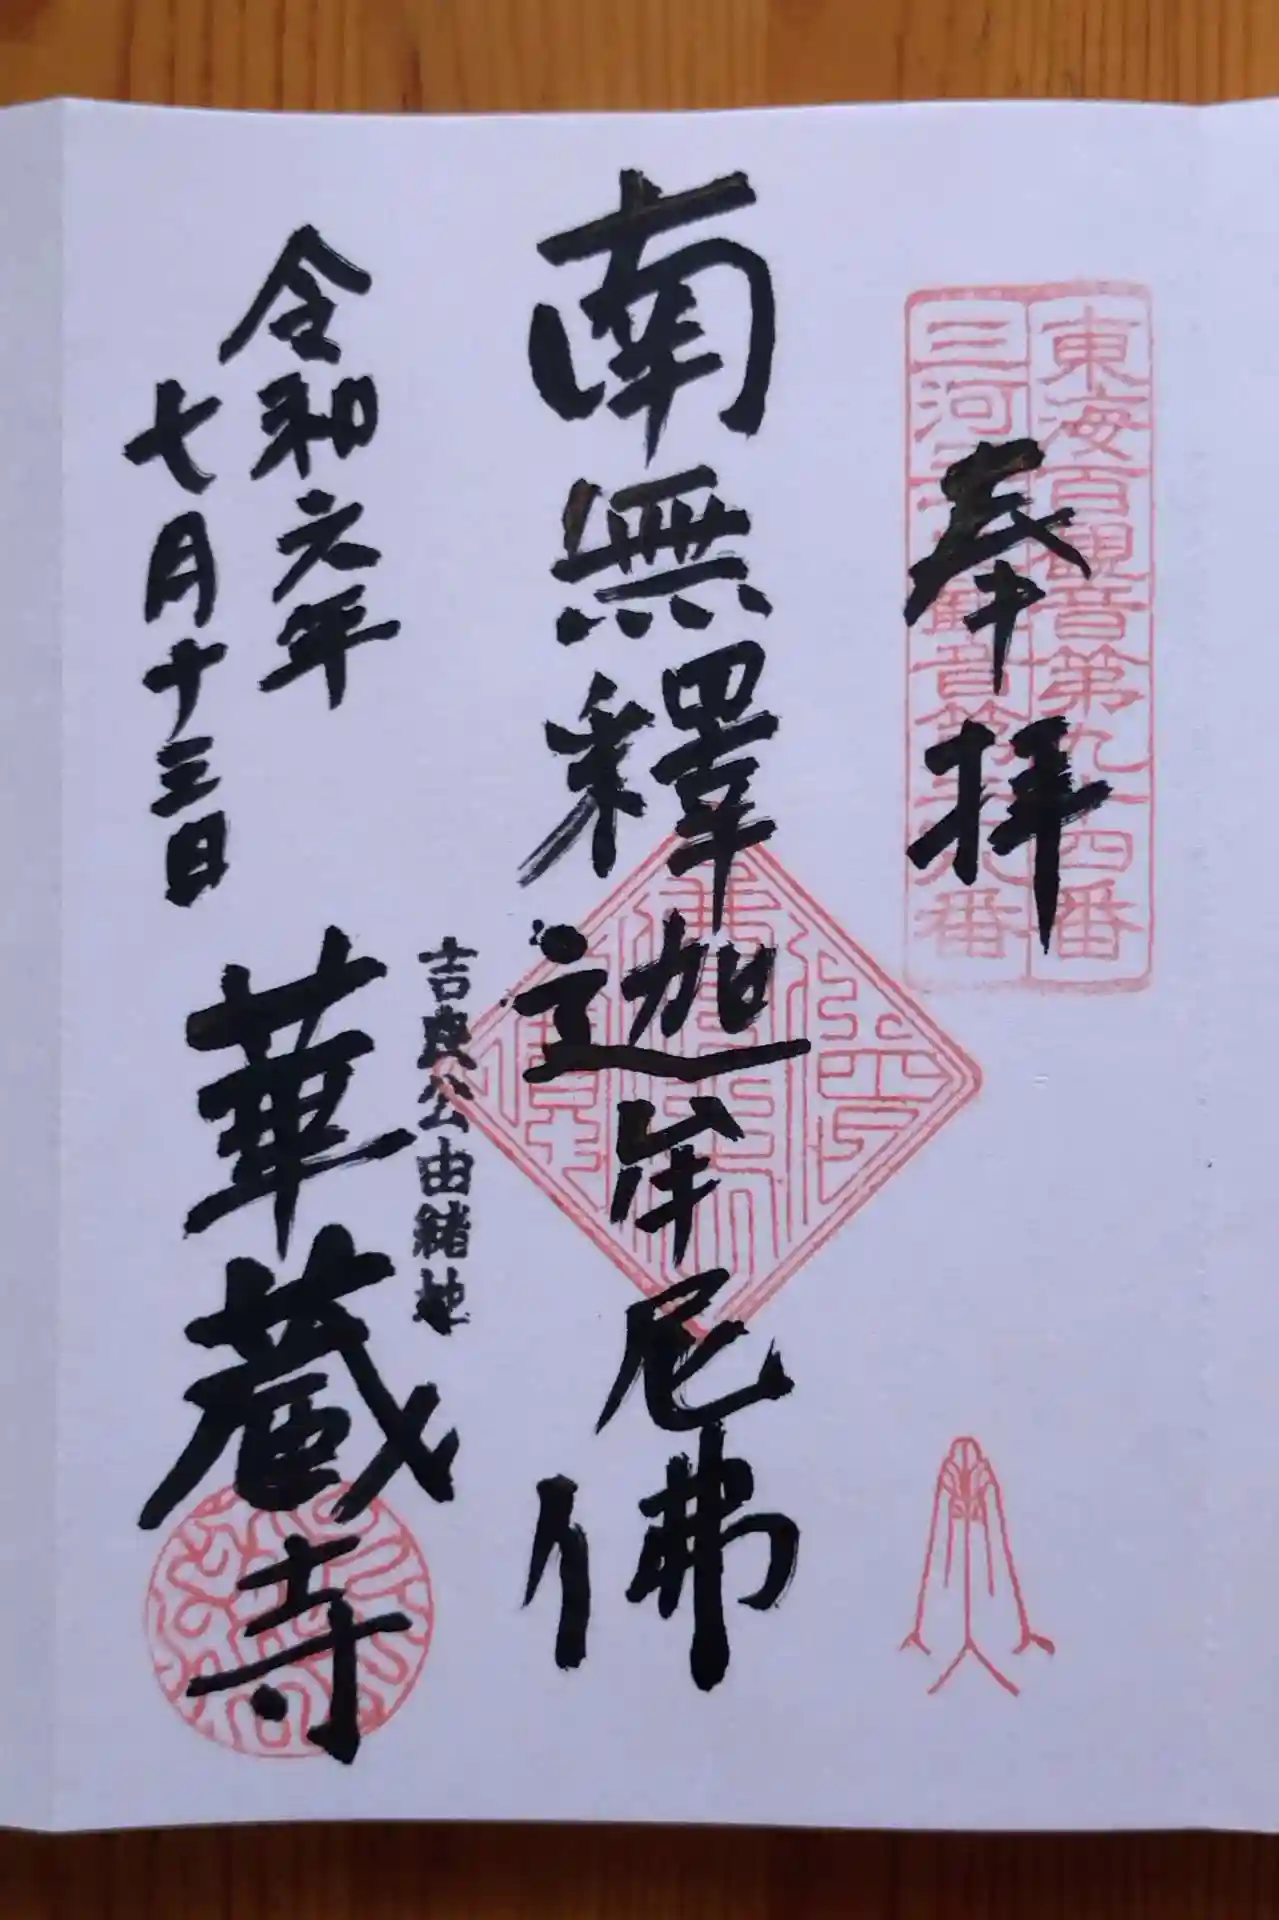 東海百観音第九十四番
三河三十三観音第二十八番
奉拝
南無釋迦牟尼佛
吉良公由緒地
令和六年
七月十三日
華蔵寺